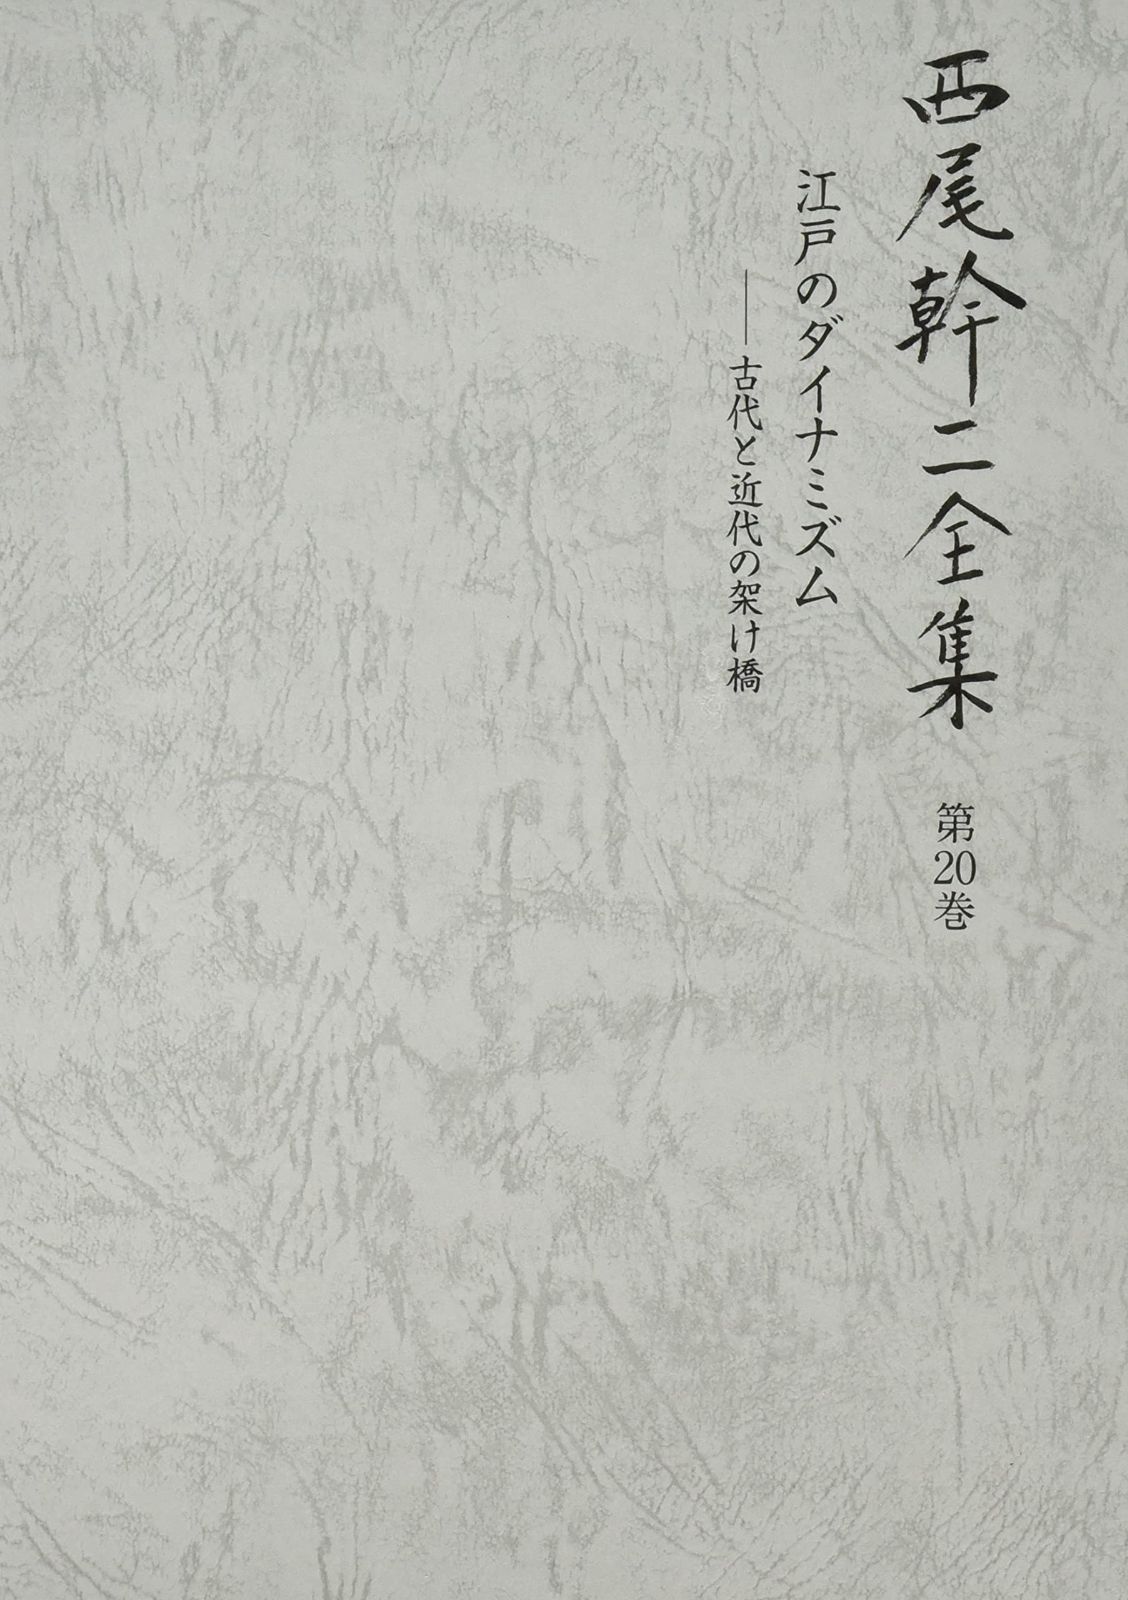 西尾幹二全集 第20巻
江戸のダイナミズム
──古代と近代の架け橋